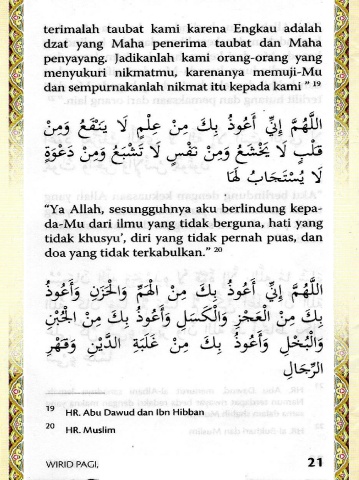 terimalah taubat kami karena Engkau adalah
dzat yang Maha penerima taubat dan Maha
penyayang. Jadikanlah kami orang-orang yang
menyukuri nikmatmu, karenanya memuji-Mu
dan sempurnakanlah nikmat itu kepada kami ” 19
اللَّهُمَّ إِنِّي أَعُوذُ بِكَ مِنْ عِلْمٍ لَا يَنْفَعُ وَمِنْ
قَلْبٍ لَا يَخْشَعُ وَمِنْ نَفْسٍ لَا تَشْبَعُ وَمِنْ دَعْوَةٍ
لَا يُسْتَجَابُ لَهَا
“Ya Allah, sesungguhnya aku berlindung kepa-
da-Mu dari ilmu yang tidak berguna, hati yang
tidak khusyu’, diri yang tidak pernah puas, dan
doa yang tidak terkabulkan.” 20
اللَّهُمَّ إِنِّي أَعُوذُ بِكَ مِنْ الْهَمِّ وَالْحَزَنِ وَأَعُوذُ
بِكَ مِنْ الْعَجْزِ وَالْكَسَلِ وَأَعُوذُ بِكَ مِنْ الْجُبْنِ
وَالْبُخْلِ وَأَعُوذُ بِكَ مِنْ غَلَبَةِ الدَّيْنِ وَقَهْرِ
الرِّجَالِ
19 HR. Abu Dawud dan Ibn Hibban
20 HR. Muslim
WIRID PAGI, 21